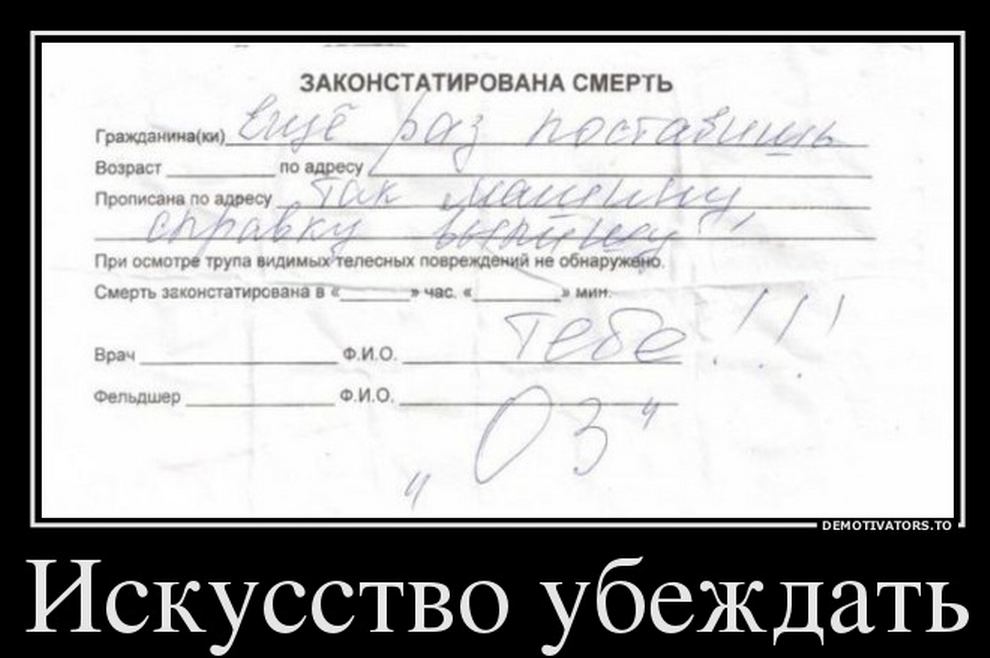 ЗАКОНСТАТИРОВАНА СМЕРТЬ
Гражданина(ки) Ещё раз поставишь
Возраст по адресу
Прописана по адресу так машину,
справку выпишу
При осмотре трупа видимых телесных повреждений не обнаружено.
Смерть законстатирована в « » час. « » мин.
тебе!!!
Врач Ф.И.О.
Фельдшер Ф.И.О.
„03"
DEMOTIVATORS.TO
Искусство убеждать